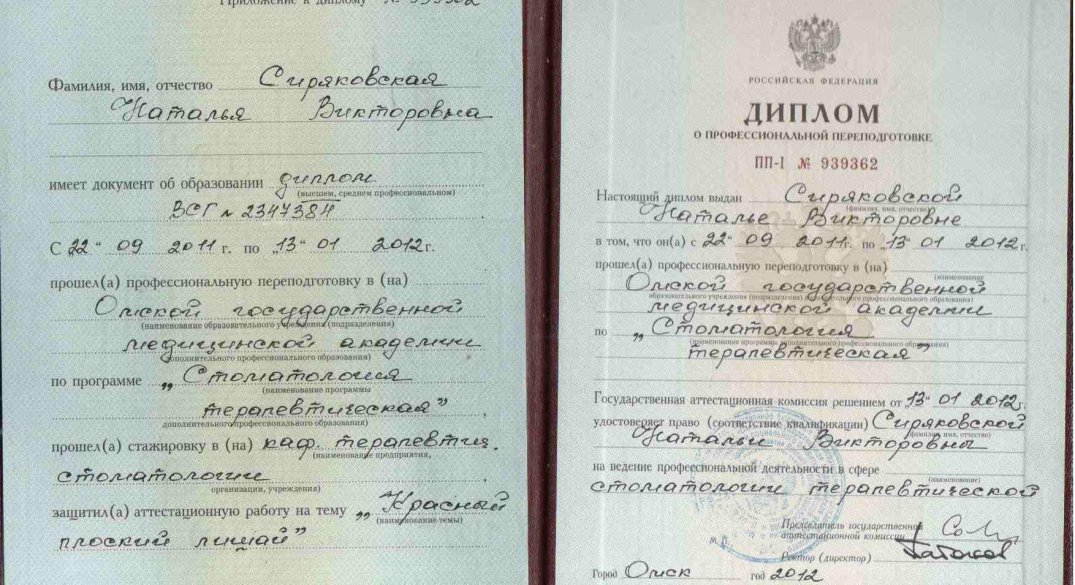 Приложение к диплому № 939362
Фамилия, имя, отчество Сиряковская
Наталья Викторовна
имеет документ об образовании диплом
(высшем, среднем профессиональном)
ВСГ № 2347384
С „22“ 09 2011 г. по „13“ 01 2012 г.
прошел(а) профессиональную переподготовку в (на)
Омской государственной
(наименование образовательного учреждения (подразделения)
медицинской академии
дополнительного профессионального образования)
по программе „Стоматология
(наименование программы
терапевтическая“,
дополнительного профессионального образования)
прошел(а) стажировку в (на) каф. терапевтич.
(наименование предприятия,
стоматологии
организации, учреждения)
защитил(а) аттестационную работу на тему „Красный
(наименование темы)
плоский лишай“
РОССИЙСКАЯ ФЕДЕРАЦИЯ
ДИПЛОМ
О ПРОФЕССИОНАЛЬНОЙ ПЕРЕПОДГОТОВКЕ
ПП-I № 939362
Настоящий диплом выдан Сиряковской
(фамилия, имя, отчество)
Наталье Викторовне
в том, что он(а) с „22“ 09 2011 г. по „13“ 01 2012 г.
прошел(а) профессиональную переподготовку в (на)
(наименование
Омской государственной
образовательного учреждения (подразделения) дополнительного профессионального образования)
медицинской академии
по „Стоматология
(наименование программы дополнительного профессионального образования)
терапевтическая“
Государственная аттестационная комиссия решением от „13“ 01 2012 г.
удостоверяет право (соответствие квалификации) Сиряковской
(фамилия, имя, отчество)
Натальи Викторовны
на ведение профессиональной деятельности в сфере
(наименование)
стоматологии терапевтической
Председатель государственной
аттестационной комиссии
М.П.
Ректор (директор)
Город Омск год 2012